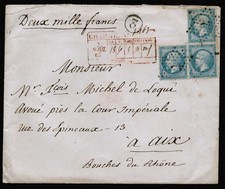 Deux mille francs
Monsieur
Mr Michel de Loqui
Avoué près la Cour Impériale
rue des Epineaux 13
à aix
Bouches du Rhône